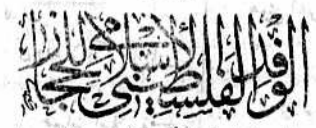 الوفد الفلسطيني الإسلامي للحجاز